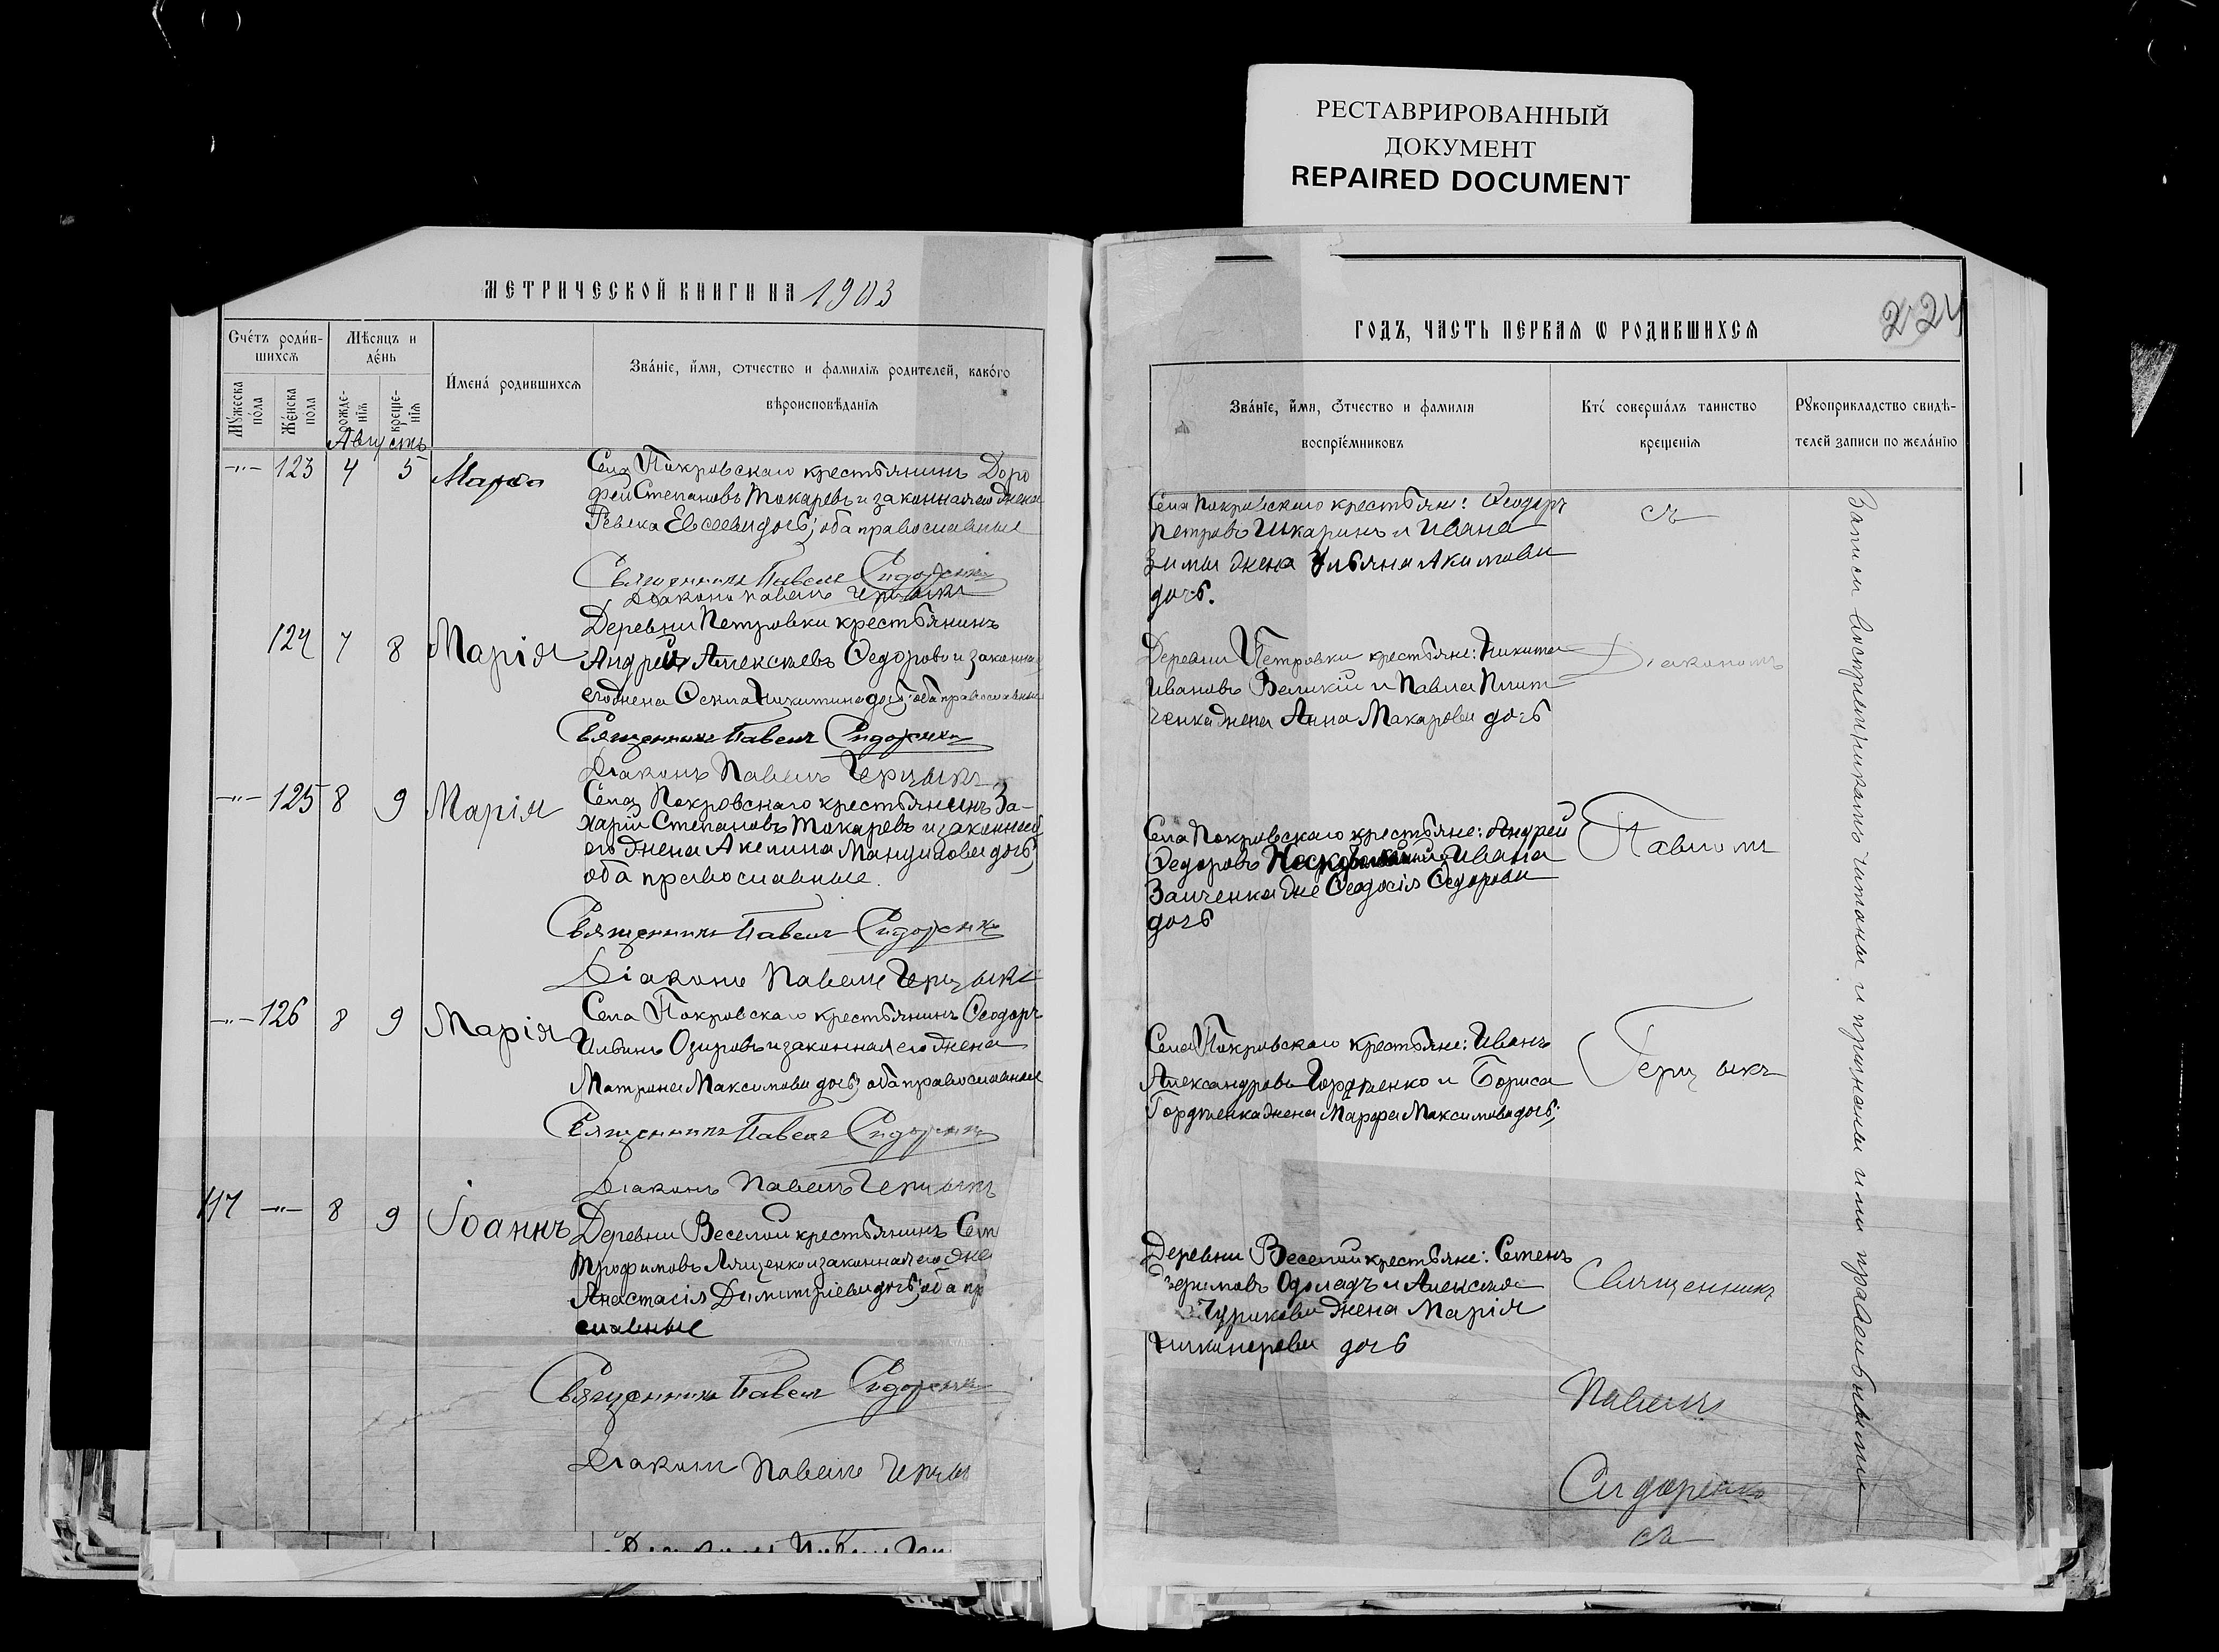 РЕСТАВРИРОВАННЫЙ
ДОКУМЕНТ
REPAIRED DOCUMENT
МЕТРИЧЕСКОЙ КНИГИ НА 1903
Счетъ родив-
шихся
Мѣсяцъ и
день
Имена родившихся
Званіе, имя, отчество и фамилія родителей, какого
вѣроисповѣданія
Мужеска
пола
Женска
пола
рожде-
нія
креще-
нія
Августъ
123 4 5 Марѳа
Села Покровскаго крестьянинъ Доро
фей Степановъ Токаревъ и законная его жена
Ревека Евсеева дочь; оба православные
Священникъ Павелъ Сидоренко
Діаконъ Павелъ Герцыкъ
124 7 8 Марія
Деревни Петровки крестьянинъ
Андрей Алексѣевъ Ѳедоровъ и законна
его жена Ѳекла Никитина дочь; оба православные
Священникъ Павелъ Сидоренко
Діаконъ Павелъ Герцыкъ
125 8 9 Марія
Села Покровскаго крестьянинъ За-
харій Степановъ Токаревъ и законная
его жена Акелина Мануилова дочь;
оба православные.
Священникъ Павелъ Сидоренко
Діаконъ Павелъ Герцыкъ
126 8 9 Марія
Села Покровскаго крестьянинъ Ѳеодоръ
Ильинъ Озировъ и законная его жена
Матрона Максимова дочь; оба православные
Священникъ Павелъ Сидоренко
Діаконъ Павелъ Герцыкъ
117 8 9 Іоаннъ
Деревни Веселой крестьянинъ
Трофимовъ Лященко и законная его же
Анастасія Димитріева дочь; оба пр
славные
Священникъ Павелъ Сидоренко
Діаконъ Павелъ Герцы
ГОДЪ, ЧАСТЬ ПЕРВАЯ Ѡ РОДИВШИХСЯ
224
Званіе, имя, отчество и фамилія
воспріемниковъ
Кто совершалъ таинство
крещенія
Рукоприкладство свидѣ-
телей записи по желанію
Села Покровскаго крестьяне: Ѳеодоръ
Петровъ Шкаринъ и Ивана
Зимы жена Ульяна Акимова
дочь.
съ
Деревни Петровки крестьяне: Никита
Ивановъ Великій и Павла
жена Анна Макарова дочь
Діакономъ
Села Покровскаго крестьяне: Андрей
Ѳедоровъ и Ивана
Заиченка жена Ѳеодосія Ѳедорова
дочь
Павломъ
Села Покровскаго крестьяне: Иванъ
Александровъ Гордіенко и Бориса
Гордіенка жена Марфа Максимова дочь;
Герцыкъ
Деревни Веселой крестьяне: Семенъ
и Алексѣя
жена Марія
Никанорова дочь
Священникъ
Павелъ
Сидоренко
съ
Записи воспріемникамъ читаны и признаны ими правильными